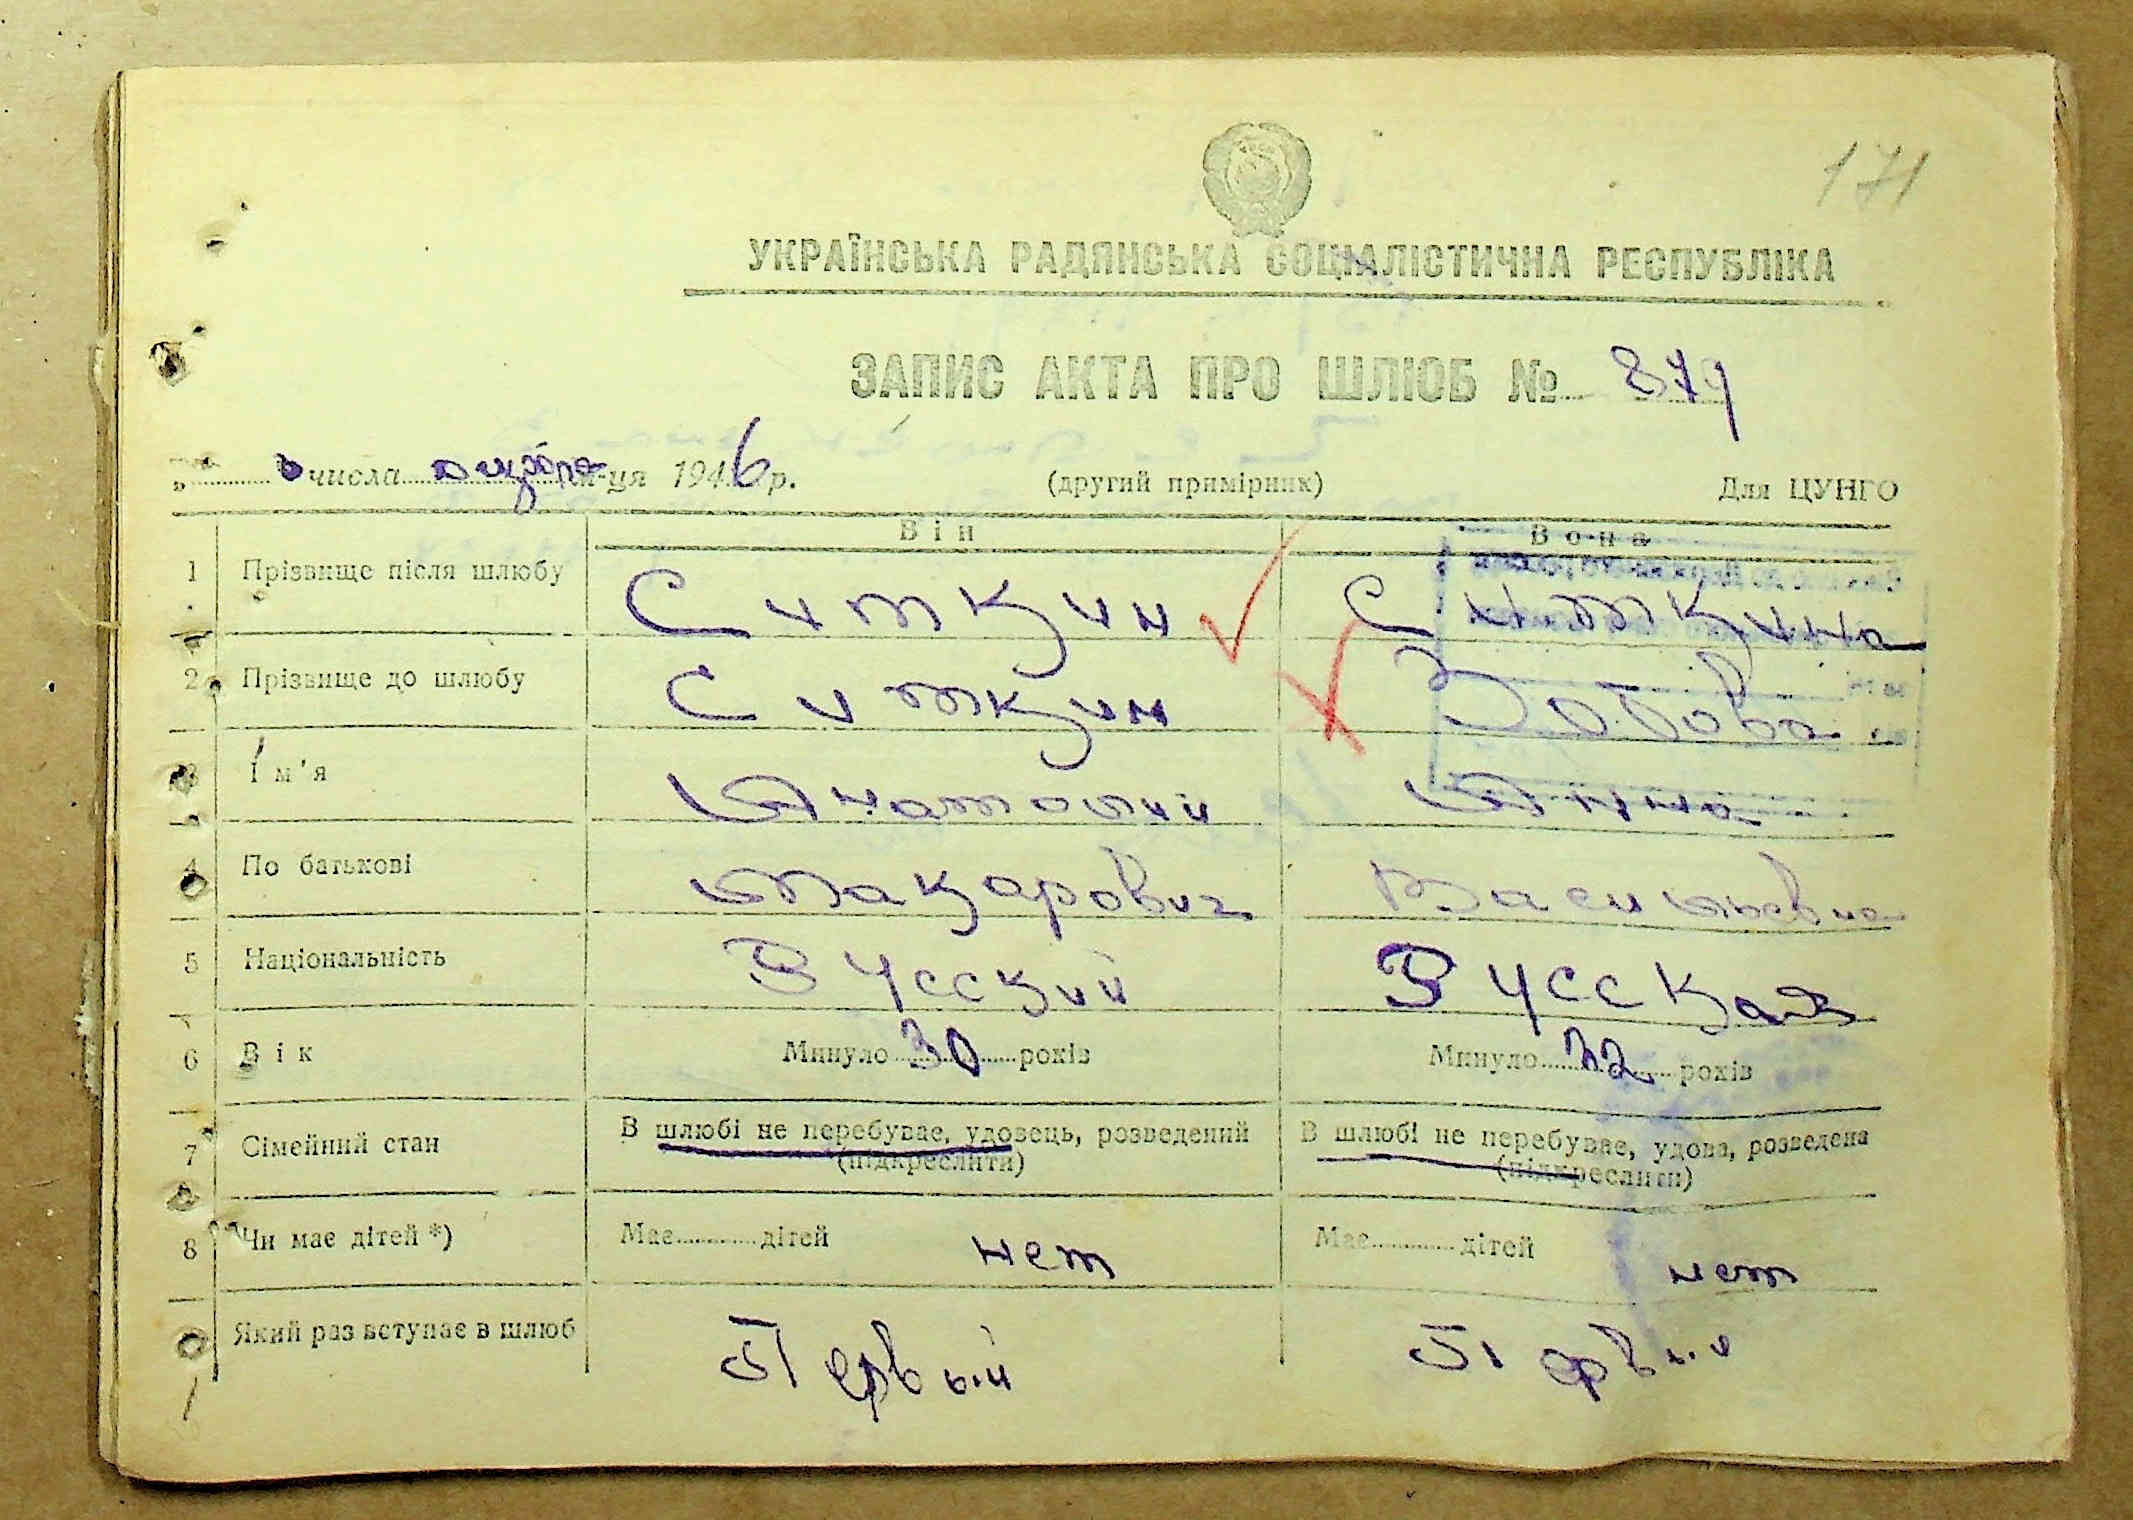 171
УКРАЇНСЬКА РАДЯНСЬКА СОЦІАЛІСТИЧНА РЕСПУБЛІКА
ЗАПИС АКТА ПРО ШЛЮБ № 879
числа м-ця 1946 р. (другий примірник) Для ЦУНГО
Він Вона
1 Прізвище після шлюбу Ситкин Ситкина
2 Прізвище до шлюбу Ситкин Зобова
3 Ім'я Анатолий Анна
4 По батькові Макарович Васильевна
5 Національність Русский Русская
6 Вік Минуло 30 років Минуло років
7 Сімейний стан В шлюбі не перебуває, удовець, розведений (підкреслити) В шлюбі не перебуває, удова, розведена (підкреслити)
8 Чи має дітей *) Має дітей нет Має дітей нет
Який раз вступає в шлюб Первый Первый